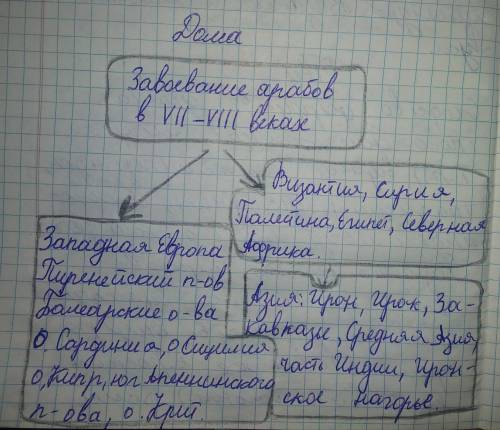 Дома
Завоевание арабов
в VII-VIII веках
Византия, Сирия,
Палетина, Египет, Северная
Африка.
Западная Европа
Пиренейский п-ов
Балеарские о-ва
О. Сардиния, о Сицилия
О, Кипр, юг Апеннинского
п-ова, о. Крит.
Азия: Иран, Ирак, За-
кавказье, Средняя Азия,
часть Индии, Иран-
ское нагорье.